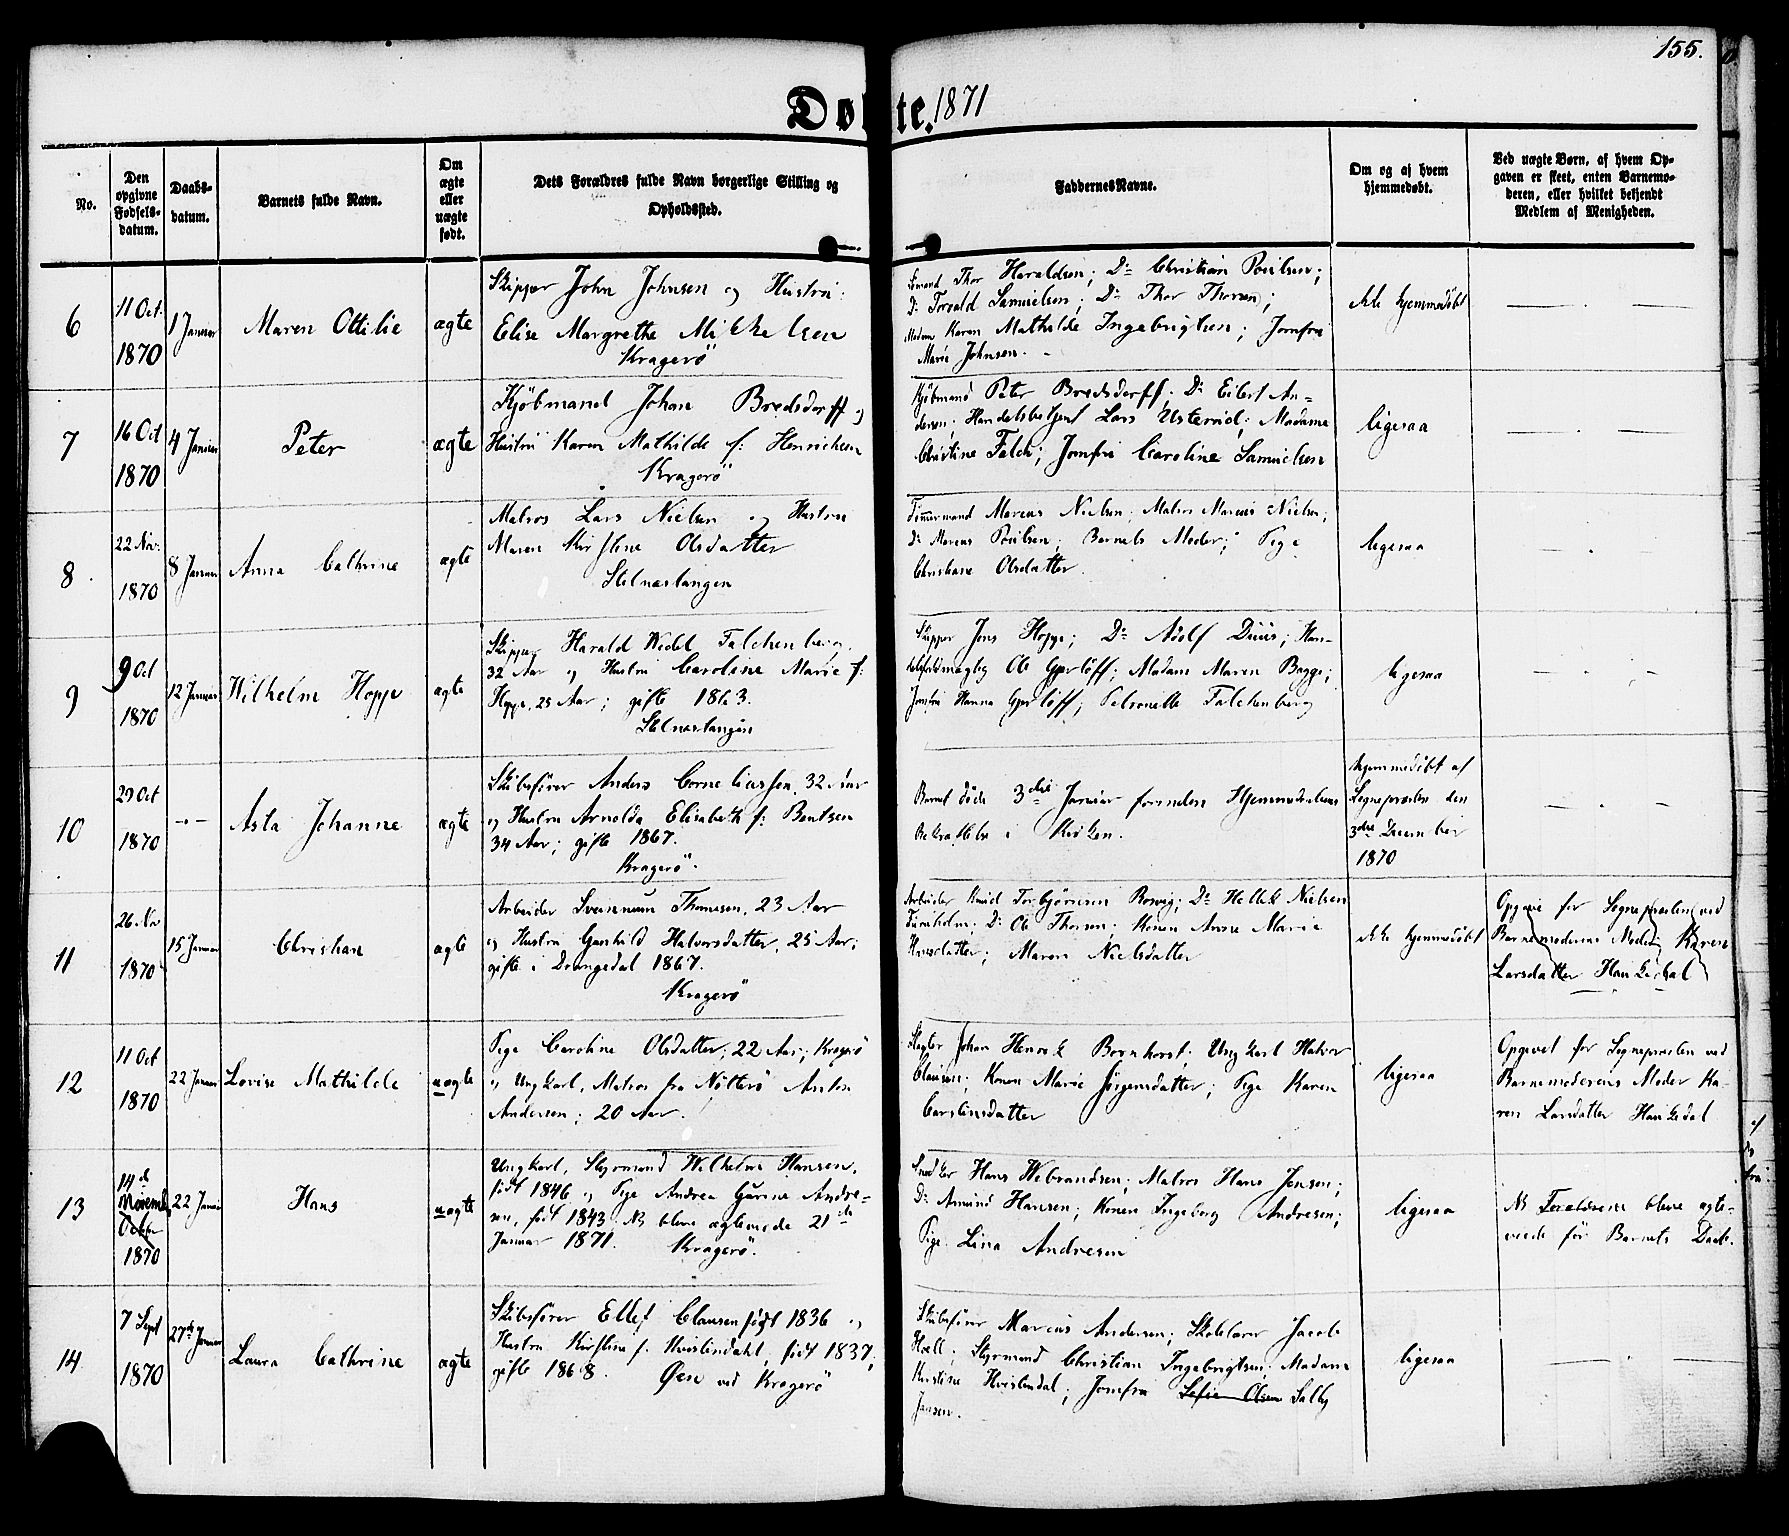 155.
Døbte. 1871
No.
Den opgivne Fødsels-datum.
Daabs-datum.
Barnets fulde Navn.
Om ægte eller uægte født.
Dets Forældres fulde Navn borgerlige Stilling og
Opholdssted.
FaddernesNavne.
Om og af hvem hjemmedøbt.
Ved uægte Børn, af hvem Op-
gaven er skeet, enten Barnemo-
deren, eller hvilket bekjendt
Medlem af Menigheden.
6
11 Oct.
1870
1 Januar
Maren Ottilie
ægte
Skipper John Johnsen og Hustru:
Elise Margrethe Mikkelsen
Kragerö
Thor Haraldsen; Do Christian Poulsen;
Do Torvald Samuelsen; Do Thor Thorsen;
Madam Karen Mathilde Ingebrigtsen; Jomfru
Marie Johnsen.
ikke hjemmedöbt
7
16 Oct
1870
4 Januar
Peter
ægte
Kjöbmand Johan Bredsdorff og
Hustru Karen Mathilde f: Henrichsen
Kragerö
Kjöbmand Peter Bredsdorff; Do Eilert An-
dersen; Handelsbetjent Lars Usterud; Madame
Christine Falch; Jomfru Caroline Samuelsen
ligesaa
8
22 Nov:
1870
8 Januar
Anna Cathrine
ægte
Matros Lars Nielsen og Hustru
Maren Kirstine Olsdatter
Stilnestangen
Tömmermand Marcus Nielsen; Matros Marcus Nielsen;
Do Marcus Poulsen; Barnets Moder; Pige
Christiane Olsdatter.
ligesaa
9
9 Oct
1870
12 Januar
Wilhelm Hoppe
ægte
Skipper Harald Wedel Falchenberg,
32 Aar og Hustru Caroline Marie f:
Hoppe, 25 Aar; gifte 1863.
Stilnestangen
Skipper Jens Hoppe; Do Adolf Duus; Han-
Ole Madam Maren Bagge;
Jomfru Hanna Petronelle Falchenberg
ligesaa
10
29 Oct
1870
Asta Johanne
ægte
Skibsförer Anders Corneliussen, 32 Aar
og Hustru Arnolda Elisabeth f: Bentsen
34 Aar; gifte 1867.
Kragerö.
Barnet döde 3die Januar forinden Hjemmedaabens
Bekræftelse i Kirken.
hjemmedöbt af
Sognepræsten den
3die December
1870
11
26 Nov
1870
15 Januar
Christian
ægte
Arbeider Thomesen, 23 Aar
og Hustru Gunhild Halvorsdatter, 25 Aar;
gifte i Drangedal 1867.
Kragerö
Arbeider Knud Torbjörnsen Do Nielsen
Do Ole Thorsen; Konen Anne Marie
Hansdatter; Maren Nielsdatter
ikke hjemmedöbt
Opgivet for Sognepræsten ved
Barnemoderens Moder Karen
Larsdatter Haukedal
12
11 Oct
1870
22 Januar
Lovise Mathilde
uægte
Pige Caroline Olsdatter; 22 Aar; Kragerö
og Ungkarl, Matros fra Nötterö Anton
Andersen; 20 Aar.
Slagter Johan Henrik Bornhorst; Ungkarl Halvor
Clausen; Konen Marie Jörgensdatter; Pige Karen
Carstensdatter
ligesaa
Opgivet for Sognepræsten ved
Barnemoderens Moder Ka-
ren Larsdatter Haukedal
13
14de
Novemb
October
1870
22 Januar
Hans
uægte
Ungkarl, Styrmand Wilhelm Hansen,
födt 1846 og Pige Andrea Gurine Andre-
sen, födt 1843. NB bleve ægteviede 21de
Januar 1871. Kragerö.
Snedker Hans Wibrandsen; Matros Hans Jensen;
Do Amund Hansen; Konen Ingeborg Andresen;
Pige Lina Andresen
ligesaa
NB Forældrene bleve ægte-
viede för Barnets Daab.
14
7 Sept
1870
27de Januar
Laura Cathrine
ægte
Skibsförer Ellef Clausen födt 1836 og
Hustru Kirstine f. Kvislindahl, födt 1837;
gifte 1868. Öen ved Kragerö
Skibsförer Marcus Andersen; Skolelærer Jacob
Styrmand Christian Ingebrigtsen; Madam
Kirstine Kvislindal; Jomfru Sofie Olsen Sally
Jensen.
ligesaa